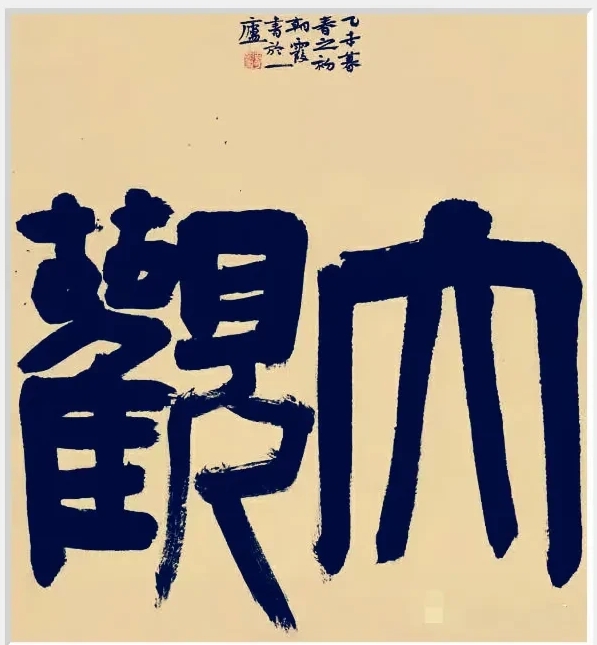 大觀
乙未暮
春之初
朝霞
書於一
廬